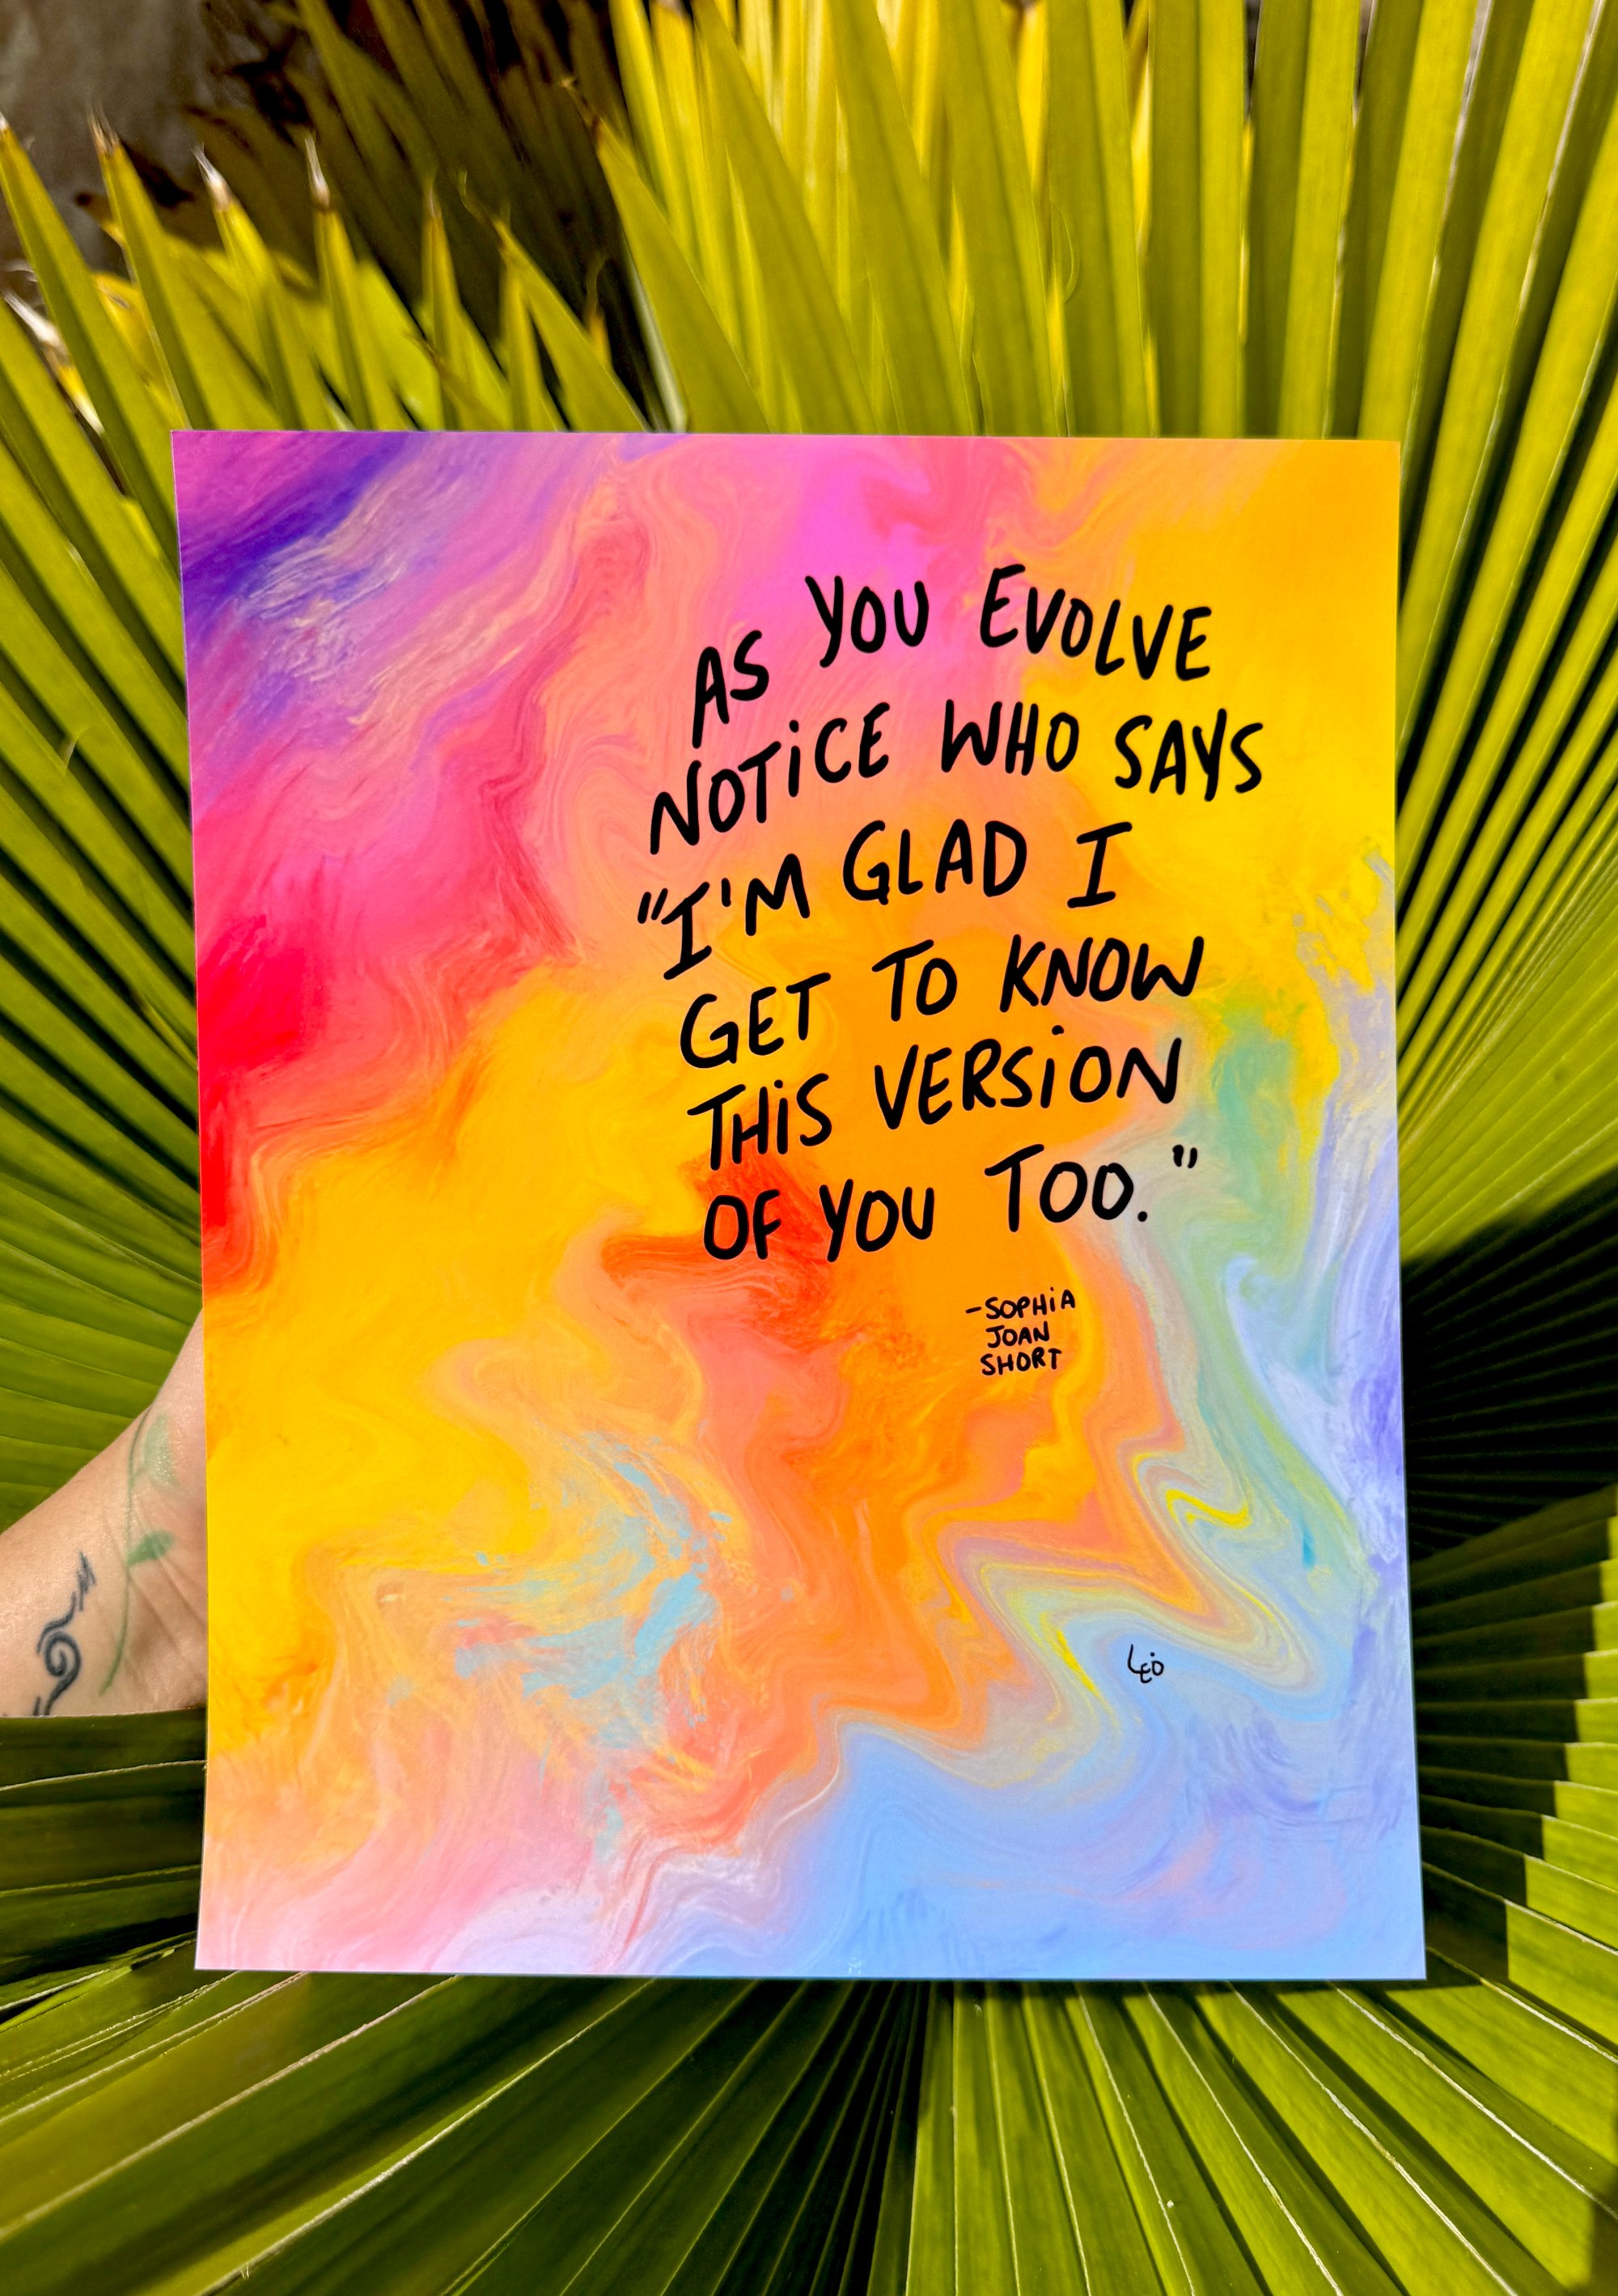 AS YOU EVOLVE
NOTiCE WHO SAYS
"I'M GLAD I
GET TO KNOW
THiS VERSiON
OF YOU TOO."
-SOPHiA
JOAN
SHORT
LEO